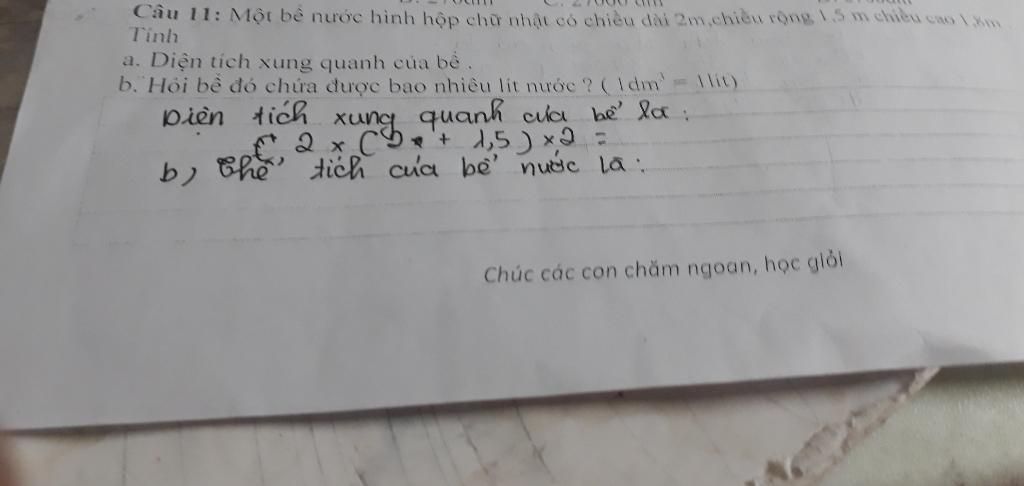 Câu 11: Một bể nước hình hộp chữ nhật có chiều dài 2m,chiều rộng 1,5 m chiều cao 1,8m
Tính
a. Diện tích xung quanh của bể .
b. Hỏi bể đó chứa được bao nhiêu lít nước ? ( 1dm³ = 1lít)
Diện tích xung quanh của bể là:
2 x ( 2 + 1,5 ) x 2 =
b, Thể tích của bể nước là:
Chúc các con chăm ngoan, học giỏi